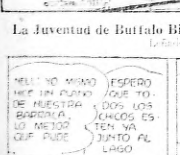 La Juventud de Buffalo Bi
NELL: YO MISMO
HICE UN PLANO
DE NUESTRA
BARRACA
LO MEJOR
QUE PUDE
ESPERO
QUE TO-
DOS LOS
CHICOS ES-
TEN YA
JUNTO AL
LAGO